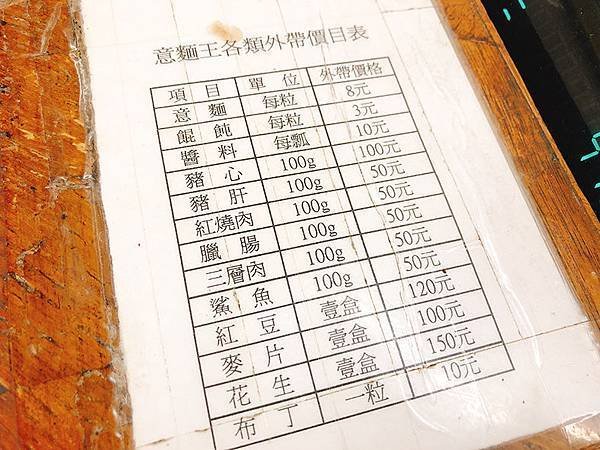 意麵王各類外帶價目表
項目 單位 外帶價格
意麵 每粒 8元
餛飩 每粒 3元
醬料 每瓢 10元
豬心 100g 100元
豬肝 100g 50元
紅燒肉 100g 50元
臘腸 100g 50元
三層肉 100g 50元
鯊魚 100g 50元
紅豆 壹盒 120元
麥片 壹盒 100元
花生 壹盒 150元
布丁 一粒 10元